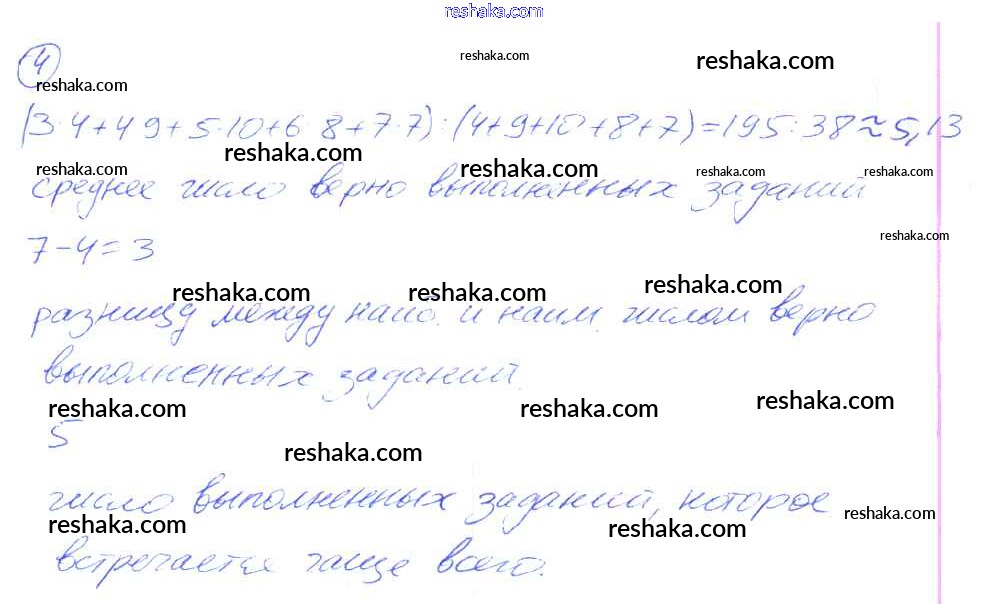 reshaka.com
reshaka.com
reshaka.com
4
reshaka.com
(3·4+4 9+5·10+6 8+7·7):(4+9+10+8+7)=195:38≈5,13
reshaka.com
reshaka.com
reshaka.com
reshaka.com
reshaka.com
среднее число верно выполненных заданий
7-4=3
reshaka.com
reshaka.com
reshaka.com
reshaka.com
разницу между наиб. и наим. числом верно
выполненных заданий.
reshaka.com
reshaka.com
reshaka.com
5
reshaka.com
число выполненных заданий, которое
reshaka.com
reshaka.com
reshaka.com
встречается чаще всего.